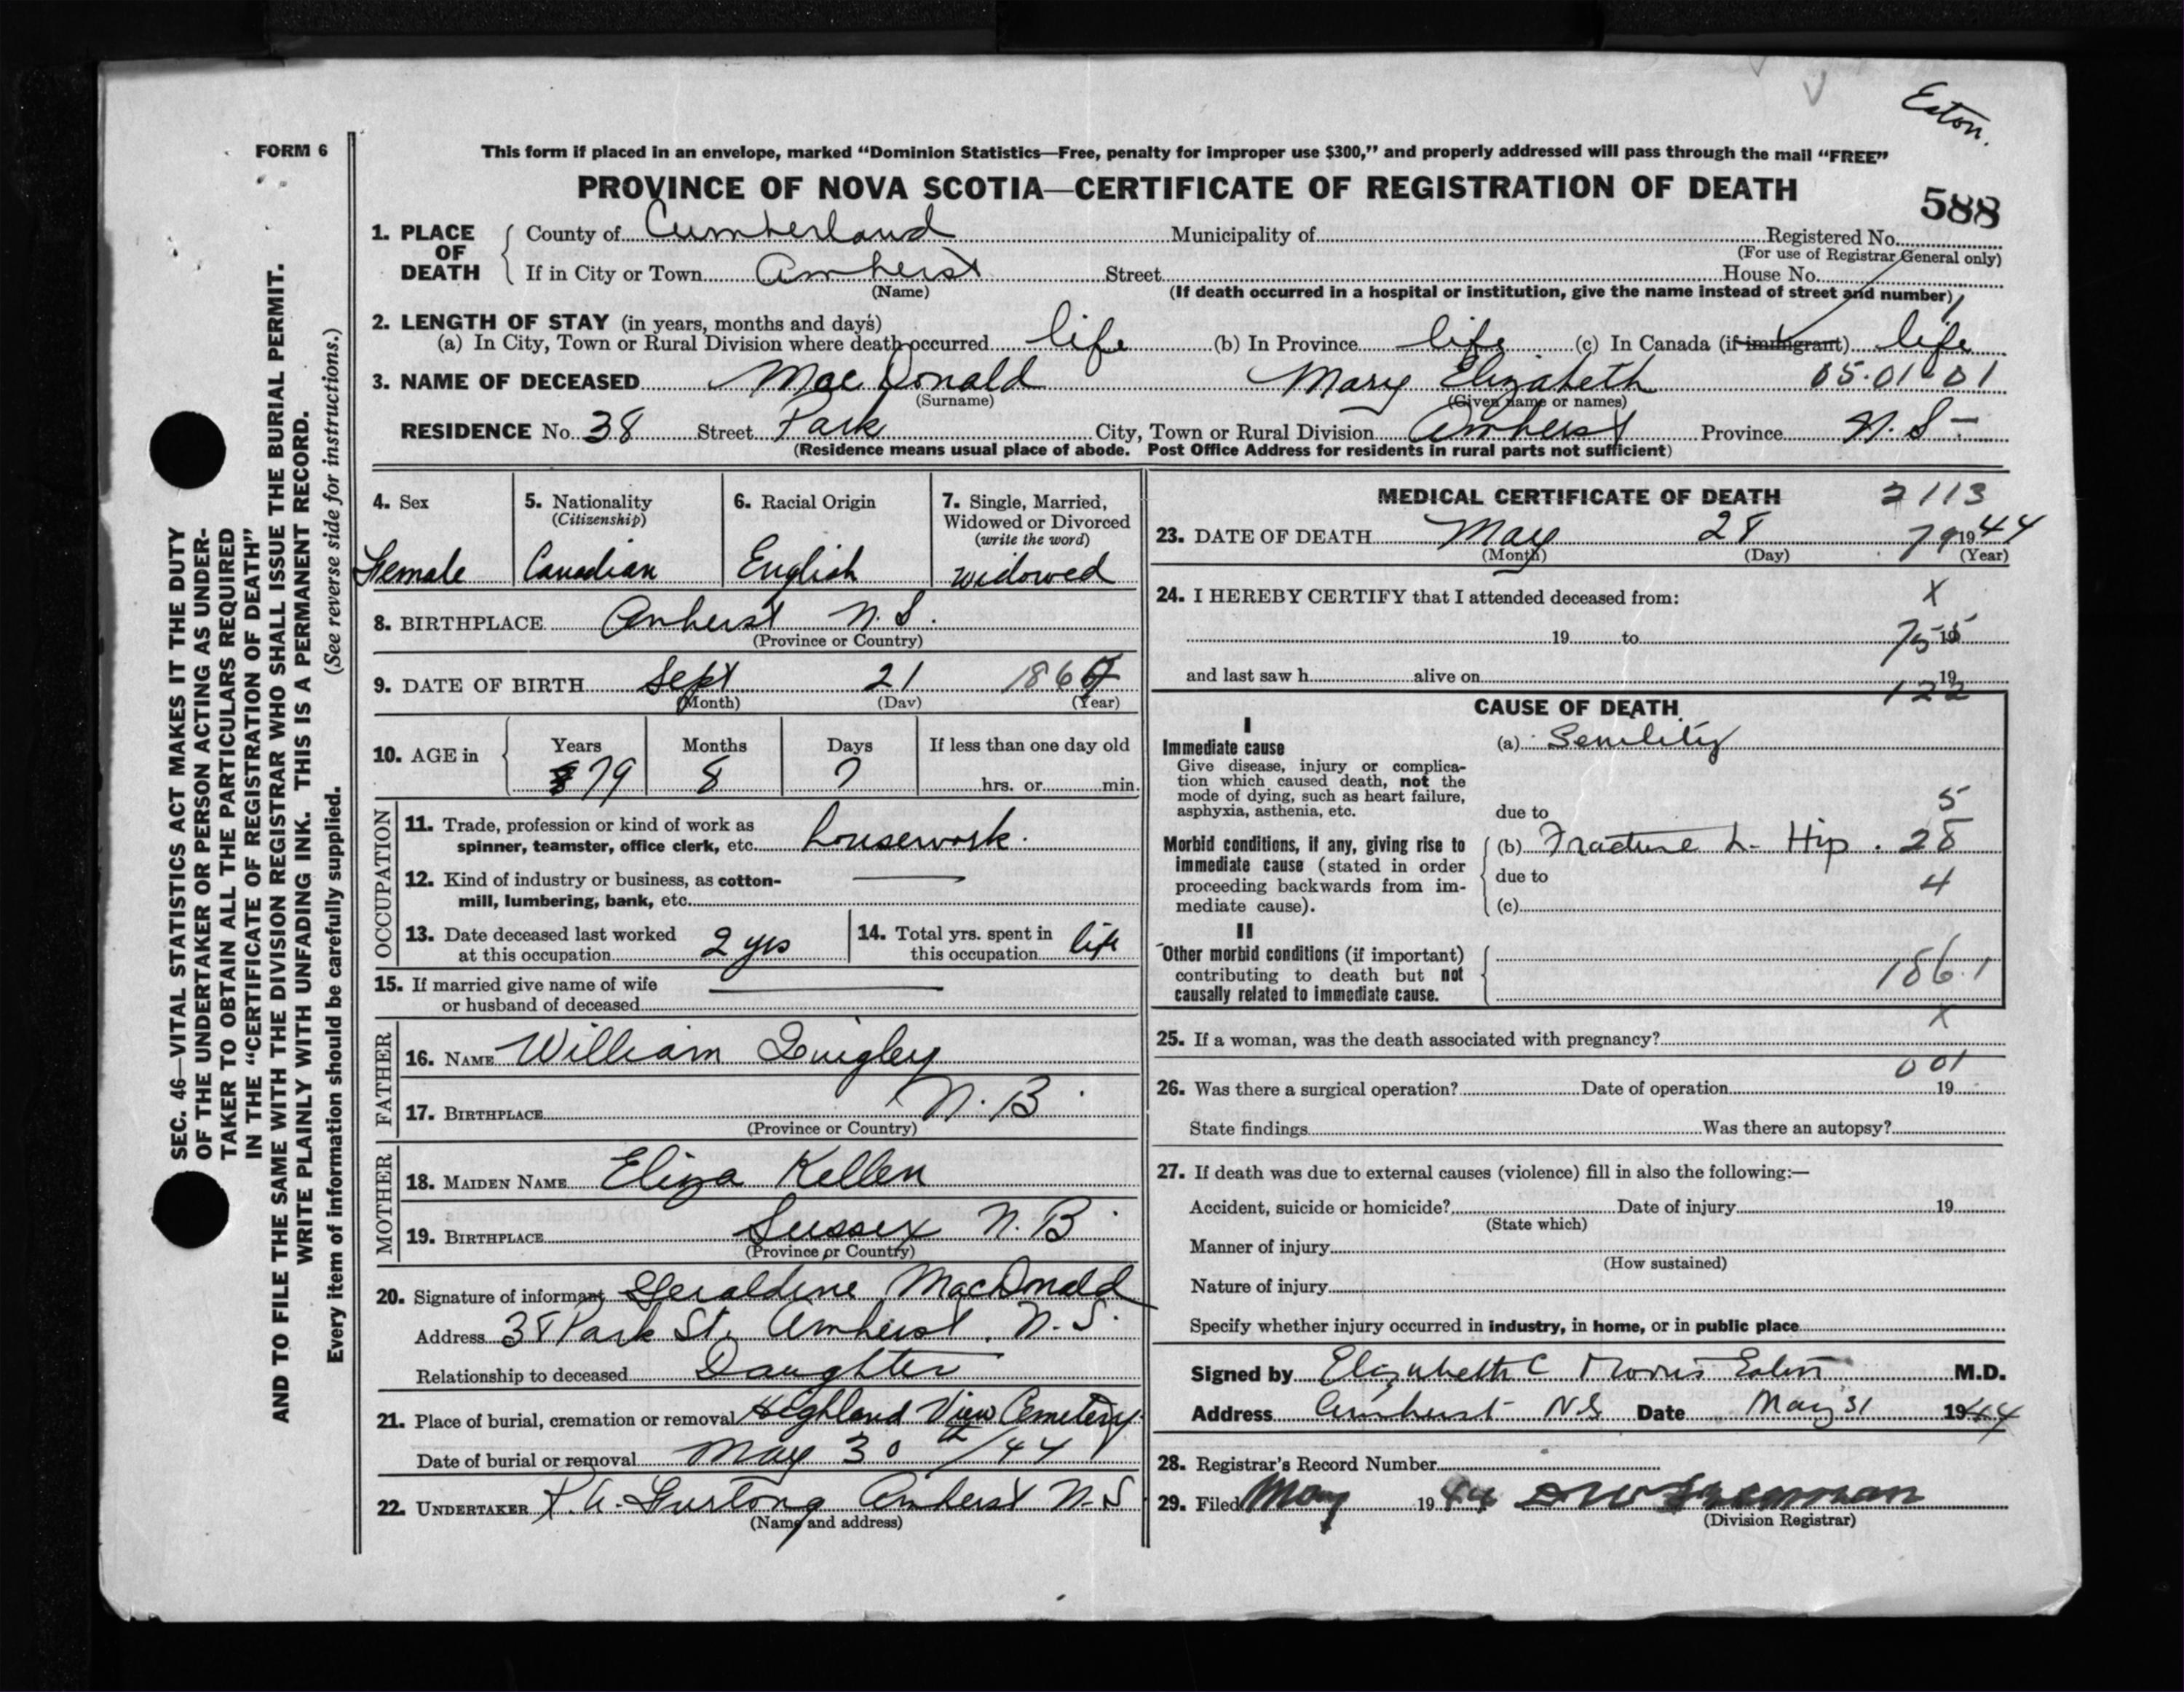 Eaton.
FORM 6
This form if placed in an envelope, marked “Dominion Statistics—Free, penalty for improper use $300,” and properly addressed will pass through the mail “FREE”
PROVINCE OF NOVA SCOTIA—CERTIFICATE OF REGISTRATION OF DEATH
588
1. PLACE OF DEATH County of Cumberland Municipality of Registered No.
(For use of Registrar General only)
If in City or Town Amherst Street House No.
(Name) (If death occurred in a hospital or institution, give the name instead of street and number)
2. LENGTH OF STAY (in years, months and days)
(a) In City, Town or Rural Division where death occurred life (b) In Province life (c) In Canada (if immigrant) life
3. NAME OF DECEASED MacDonald Mary Elizabeth 05.01-01
(Surname) (Given name or names)
RESIDENCE No. 38 Street Park City, Town or Rural Division Amherst Province N.S-
(Residence means usual place of abode. Post Office Address for residents in rural parts not sufficient)
4. Sex
Female
5. Nationality
(Citizenship)
Canadian
6. Racial Origin
English
7. Single, Married, Widowed or Divorced
(write the word)
widowed
8. BIRTHPLACE Amherst N.S.
(Province or Country)
9. DATE OF BIRTH Sept 21 186
(Month) (Day) (Year)
10. AGE in Years Months Days If less than one day old
79 8 7 hrs. or min.
OCCUPATION
11. Trade, profession or kind of work as
spinner, teamster, office clerk, etc. housework.
12. Kind of industry or business, as cotton-
mill, lumbering, bank, etc.
13. Date deceased last worked
at this occupation 2 yrs
14. Total yrs. spent in
this occupation life
15. If married give name of wife
or husband of deceased
FATHER
16. NAME William Quigley
17. BIRTHPLACE N.B.
(Province or Country)
MOTHER
18. MAIDEN NAME Eliza Kellen
19. BIRTHPLACE Sussex N.B.
(Province or Country)
20. Signature of informant Geraldine MacDonald
Address 38 Park St. Amherst. N.S.
Relationship to deceased Daughter
21. Place of burial, cremation or removal Highland View Cemetery
Date of burial or removal May 30th/44
22. UNDERTAKER Amherst N.S
(Name and address)
MEDICAL CERTIFICATE OF DEATH 2113
23. DATE OF DEATH May 28 79 1944
(Month) (Day) (Year)
24. I HEREBY CERTIFY that I attended deceased from: X
19 to 19
and last saw h alive on 19
122
CAUSE OF DEATH
I
Immediate cause
Give disease, injury or complica-
tion which caused death, not the
mode of dying, such as heart failure,
asphyxia, asthenia, etc.
(a) Senility
due to 5
Morbid conditions, if any, giving rise to
immediate cause (stated in order
proceeding backwards from im-
mediate cause).
(b) Fracture L- Hip. 28
due to 4
(c)
II
Other morbid conditions (if important)
contributing to death but not
causally related to immediate cause.
186.1
X
25. If a woman, was the death associated with pregnancy?
001
26. Was there a surgical operation? Date of operation 19
State findings Was there an autopsy?
27. If death was due to external causes (violence) fill in also the following:—
Accident, suicide or homicide? Date of injury 19
(State which)
Manner of injury
(How sustained)
Nature of injury
Specify whether injury occurred in industry, in home, or in public place
Signed by Elizabeth C Morris Eaton M.D.
Address Amherst NS Date May 31 1944
28. Registrar's Record Number
29. Filed May 1944
(Division Registrar)
SEC. 46—VITAL STATISTICS ACT MAKES IT THE DUTY
OF THE UNDERTAKER OR PERSON ACTING AS UNDER-
TAKER TO OBTAIN ALL THE PARTICULARS REQUIRED
IN THE “CERTIFICATE OF REGISTRATION OF DEATH”
AND TO FILE THE SAME WITH THE DIVISION REGISTRAR WHO SHALL ISSUE THE BURIAL PERMIT.
WRITE PLAINLY WITH UNFADING INK. THIS IS A PERMANENT RECORD.
Every item of information should be carefully supplied. (See reverse side for instructions.)